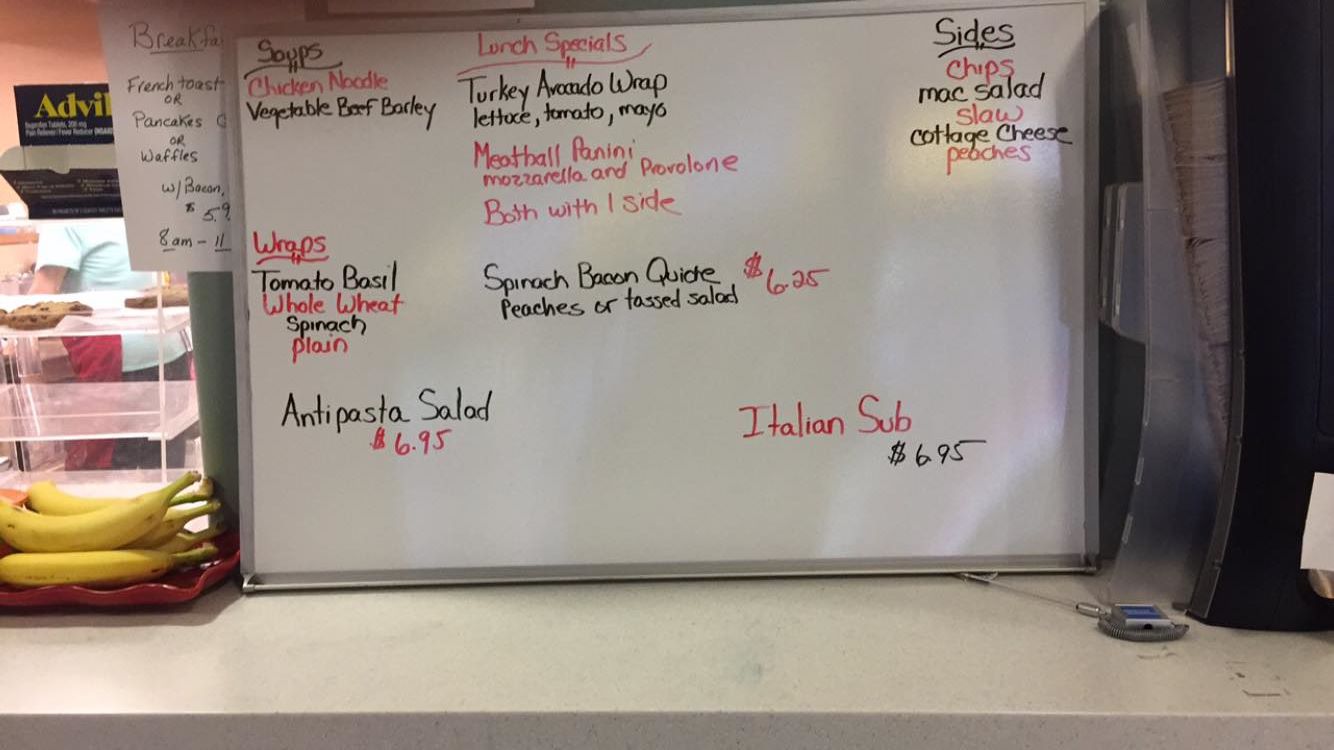 Breakfa
French toast
OR
Pancakes
OR
Waffles
w/ Bacon,
$ 5.9
8am - 11
Advil
Soups
Chicken Noodle
Vegetable Beef Barley
Lunch Specials
Turkey Avocado Wrap
lettuce, tomato, mayo
Meatball Panini
mozzarella and Provolone
Both with 1 side
Sides
Chips
mac salad
slaw
cottage Cheese
peaches
Wraps
Tomato Basil
Whole Wheat
Spinach
plain
Spinach Bacon Quiche $6.25
Peaches or tossed salad
Antipasta Salad
$6.95
Italian Sub
$6.95